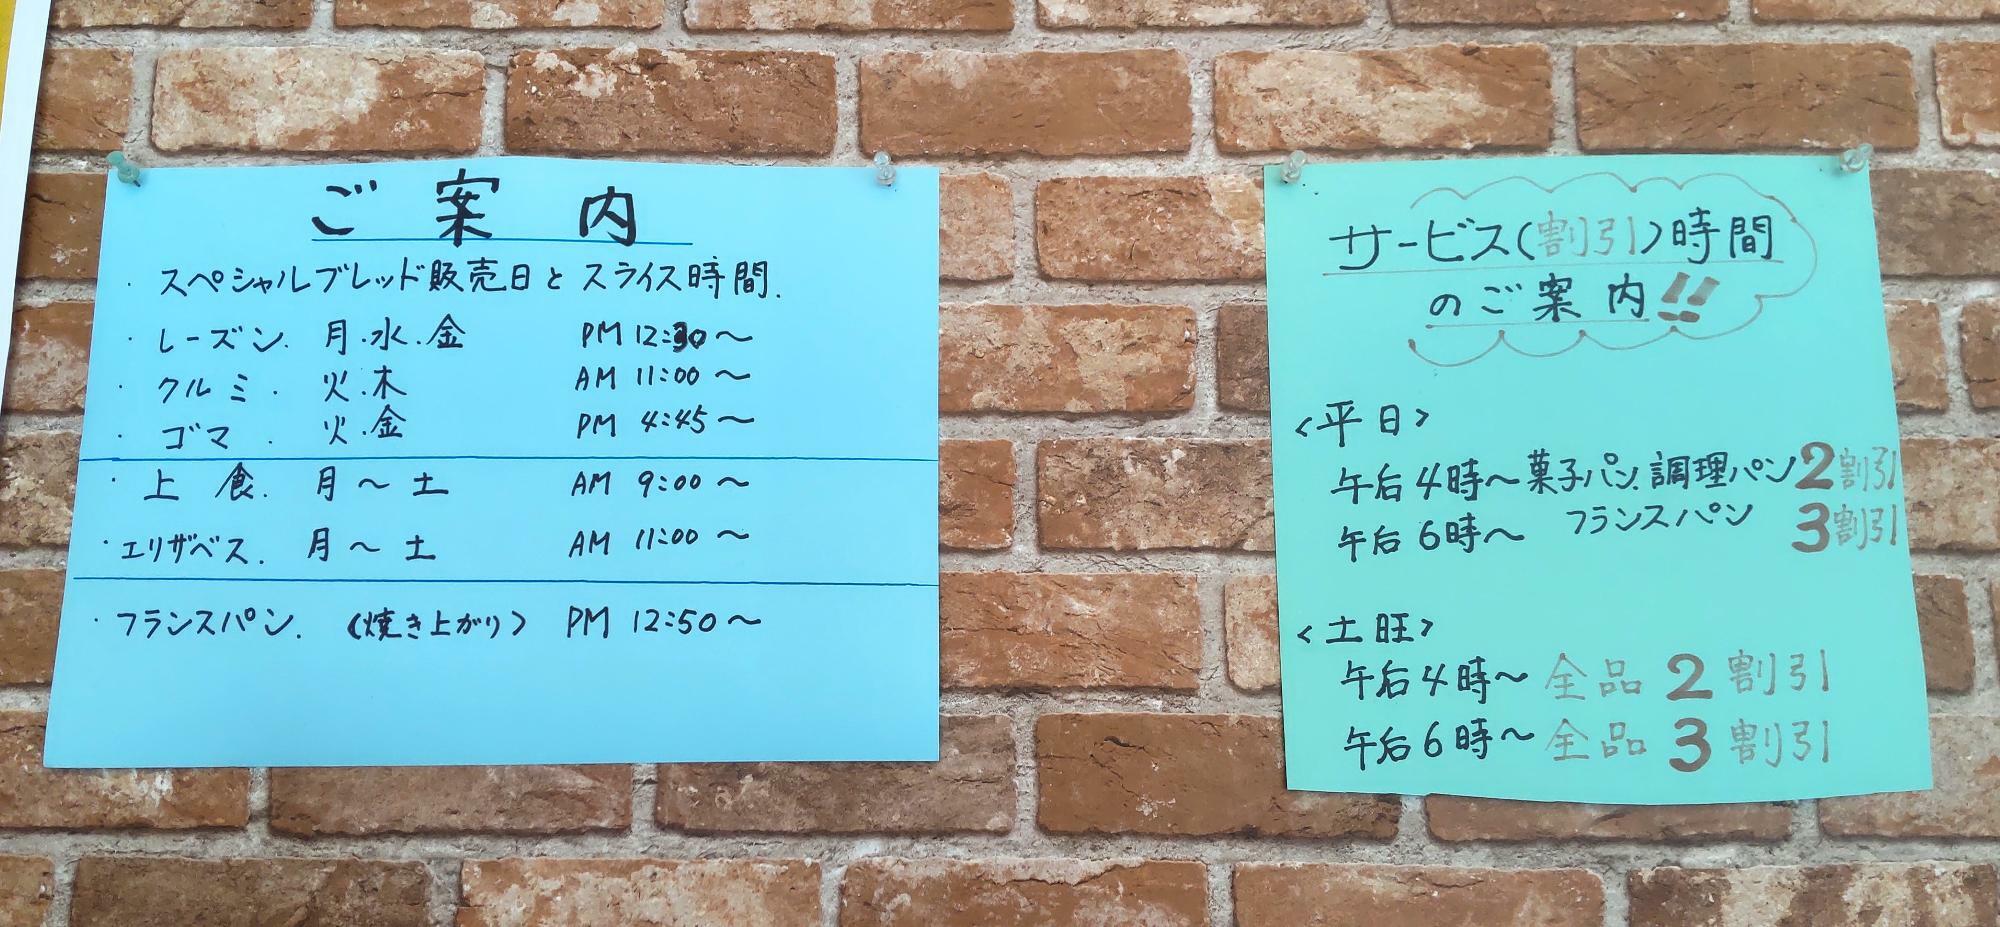 ご案内
・スペシャルブレッド販売日とスライス時間.
・レーズン. 月.水.金 PM 12:30〜
・クルミ. 火.木 AM 11:00〜
・ゴマ. 火.金 PM 4:45〜
・上食. 月〜土 AM 9:00〜
・エリザベス. 月〜土 AM 11:00〜
・フランスパン. <焼き上がり> PM 12:50〜
サービス(割引)時間
のご案内!!
<平日>
午后4時〜菓子パン.調理パン2割引
午后6時〜 フランスパン 3割引
<土旺>
午后4時〜全品2割引
午后6時〜全品3割引